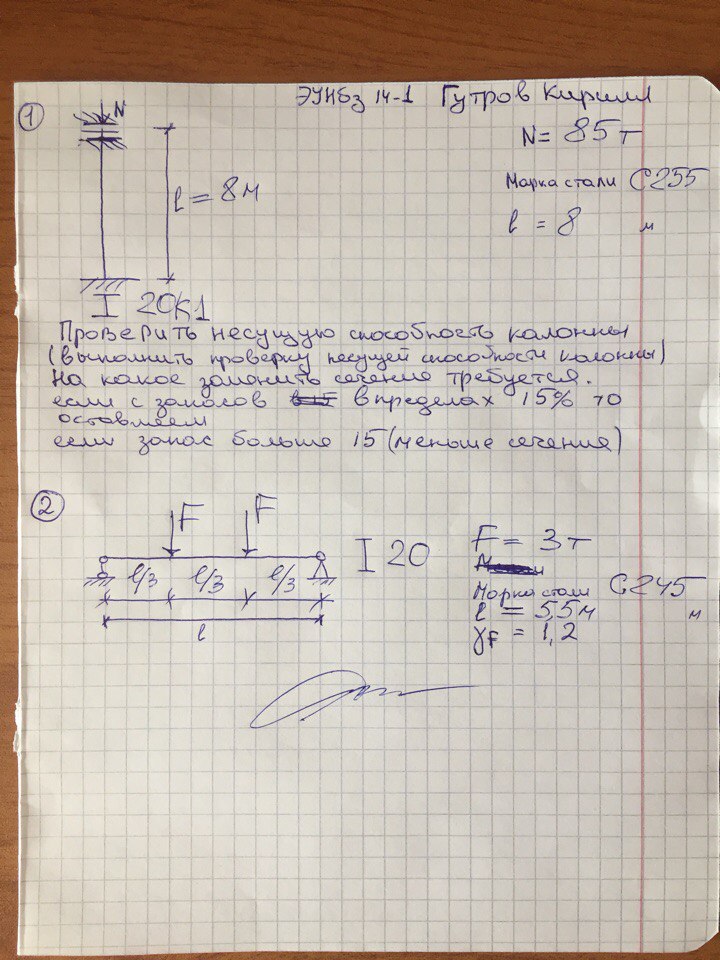 ЭУНбз 14-1 Гутров Кирилл
①
N
N= 85 т
Марка стали С255
l = 8м
l = 8 м
I 20К1
Проверить несущую способность калонны
(выполнить проверку несущей способности калонны)
На какое заменить сечение требуется.
если с запасов в пределах 15% то
оставляем
если запас больше 15 (меньше сечения)
②
F F
I 20
F = 3т
l/3 l/3 l/3
Марка стали С245
l = 5,5м м
l
γF = 1,2